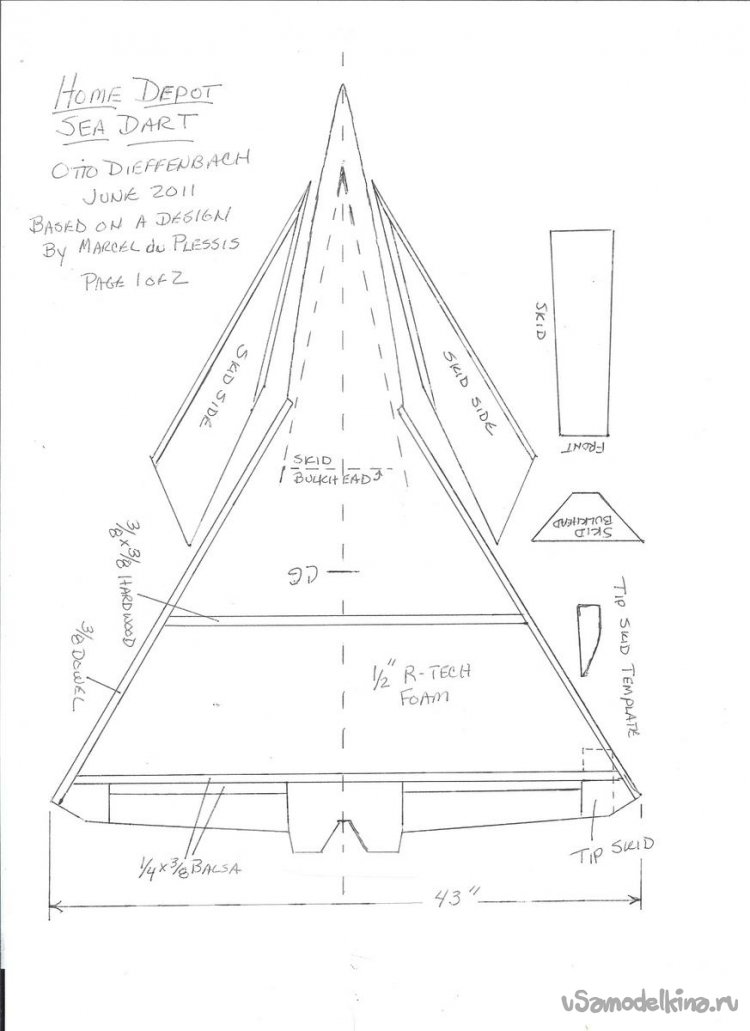 HOME DEPOT
SEA DART
OTTO DIEFFENBACH
JUNE 2011
BASED ON A DESIGN
BY MARCEL du PLESSIS
PAGE 1 OF 2
SKID SIDE
SKID SIDE
SKID
FRONT
SKID
BULKHEAD
SKID
BULKHEAD
CG
3/8 x 3/8 HARDWOOD
3/8 DOWEL
TIP SKID TEMPLATE
1/2" R-TECH
FOAM
TIP SKID
1/4 x 3/8 BALSA
43"
uSamodelkina.ru